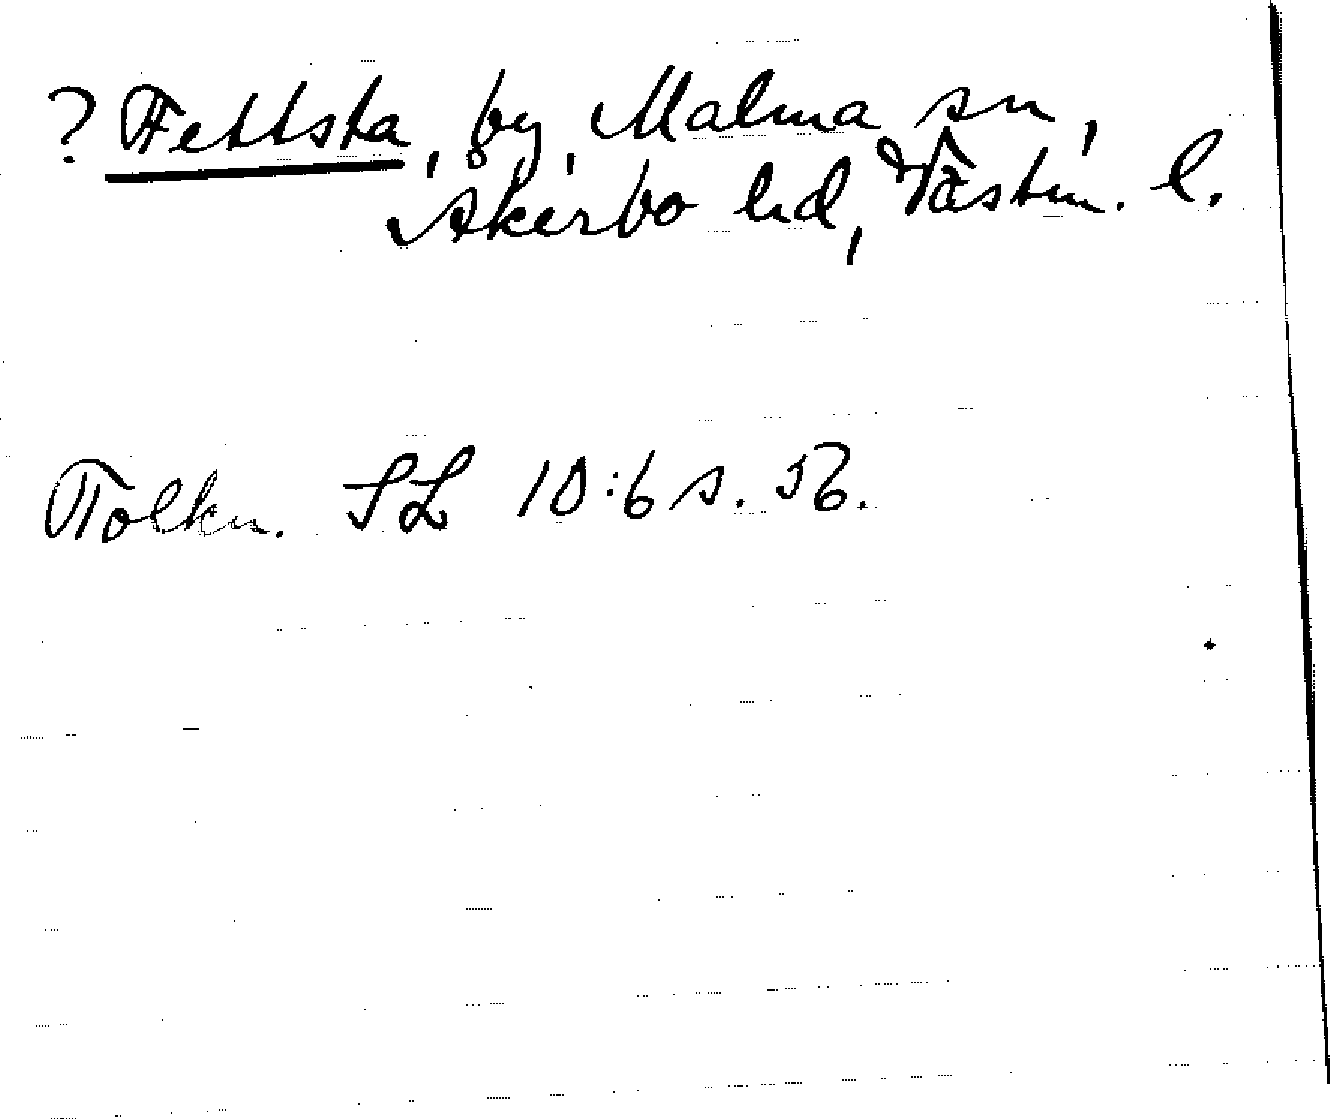 ? Fettsta, by, Malma sn,
Åkerbo hd, Västm. l.
Tolkn. SL 10:6 s. 56.